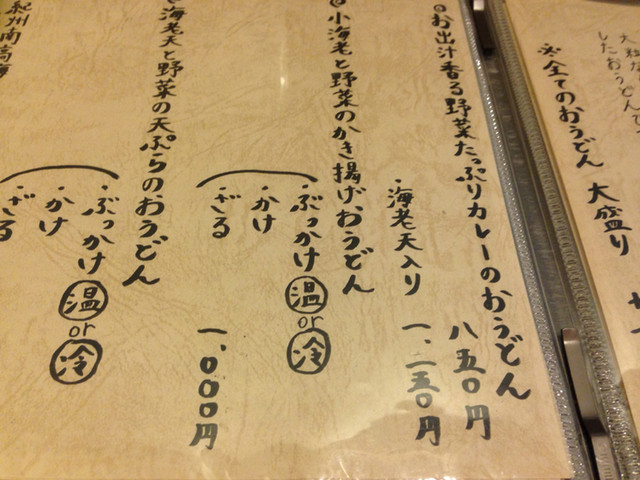 大粒な
したおうどんで
※全てのおうどん 大盛り
◎お出汁香る野菜たっぷりカレーのおうどん
八五〇円
・海老天入り 一、二五〇円
小海老と野菜のかき揚げおうどん
・ぶっかけ 温 or 冷
・かけ
・ざる
一、〇〇〇円
海老天と野菜の天ぷらのおうどん
・ぶっかけ 温 or 冷
・かけ
・ざる
紀州南高梅